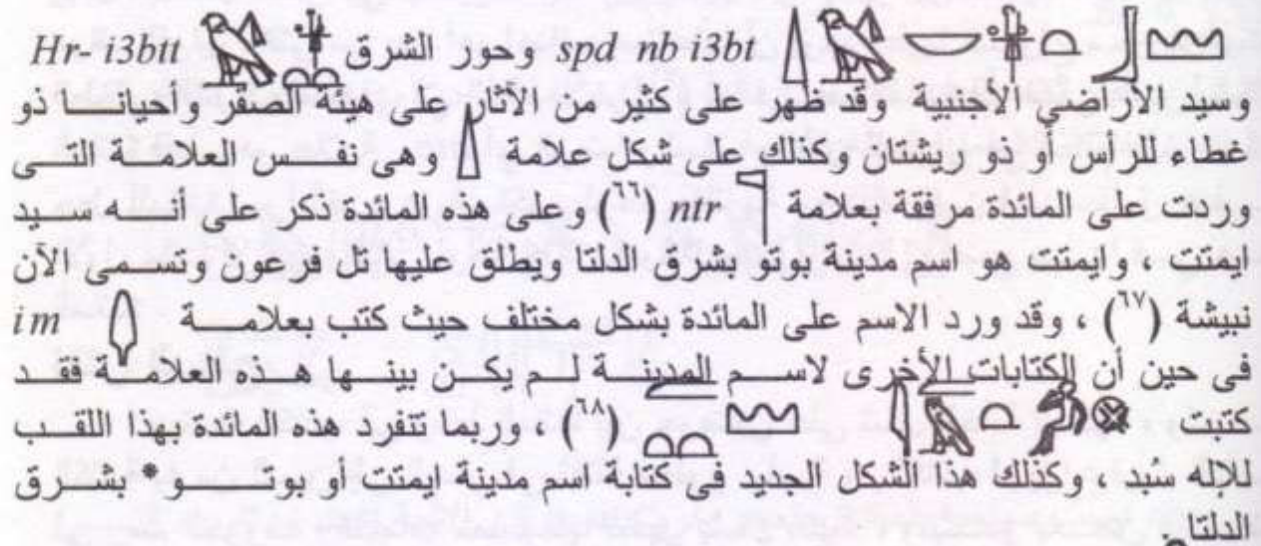 spd nb i3bt وحور الشرق Hr- i3btt
وسيد الأراضي الأجنبية وقد ظهر على كثير من الآثار على هيئة الصقر وأحيانا ذو
غطاء للرأس أو ذو ريشتان وكذلك على شكل علامة وهى نفس العلامة التى
وردت على المائدة مرفقة بعلامة ntr (٦٦) وعلى هذه المائدة ذكر على أنه سيد
ايمتت ، وايمتت هو اسم مدينة بوتو بشرق الدلتا ويطلق عليها تل فرعون وتسمى الآن
نبيشة (٦٧) ، وقد ورد الاسم على المائدة بشكل مختلف حيث كتب بعلامة im
فى حين أن الكتابات الأخرى لاسم المدينة لم يكن بينها هذه العلامة فقد
كتبت (٦٨) ، وربما تنفرد هذه المائدة بهذا اللقب
للإله سُبد ، وكذلك هذا الشكل الجديد فى كتابة اسم مدينة ايمتت أو بوتو* بشرق
الدلتا.